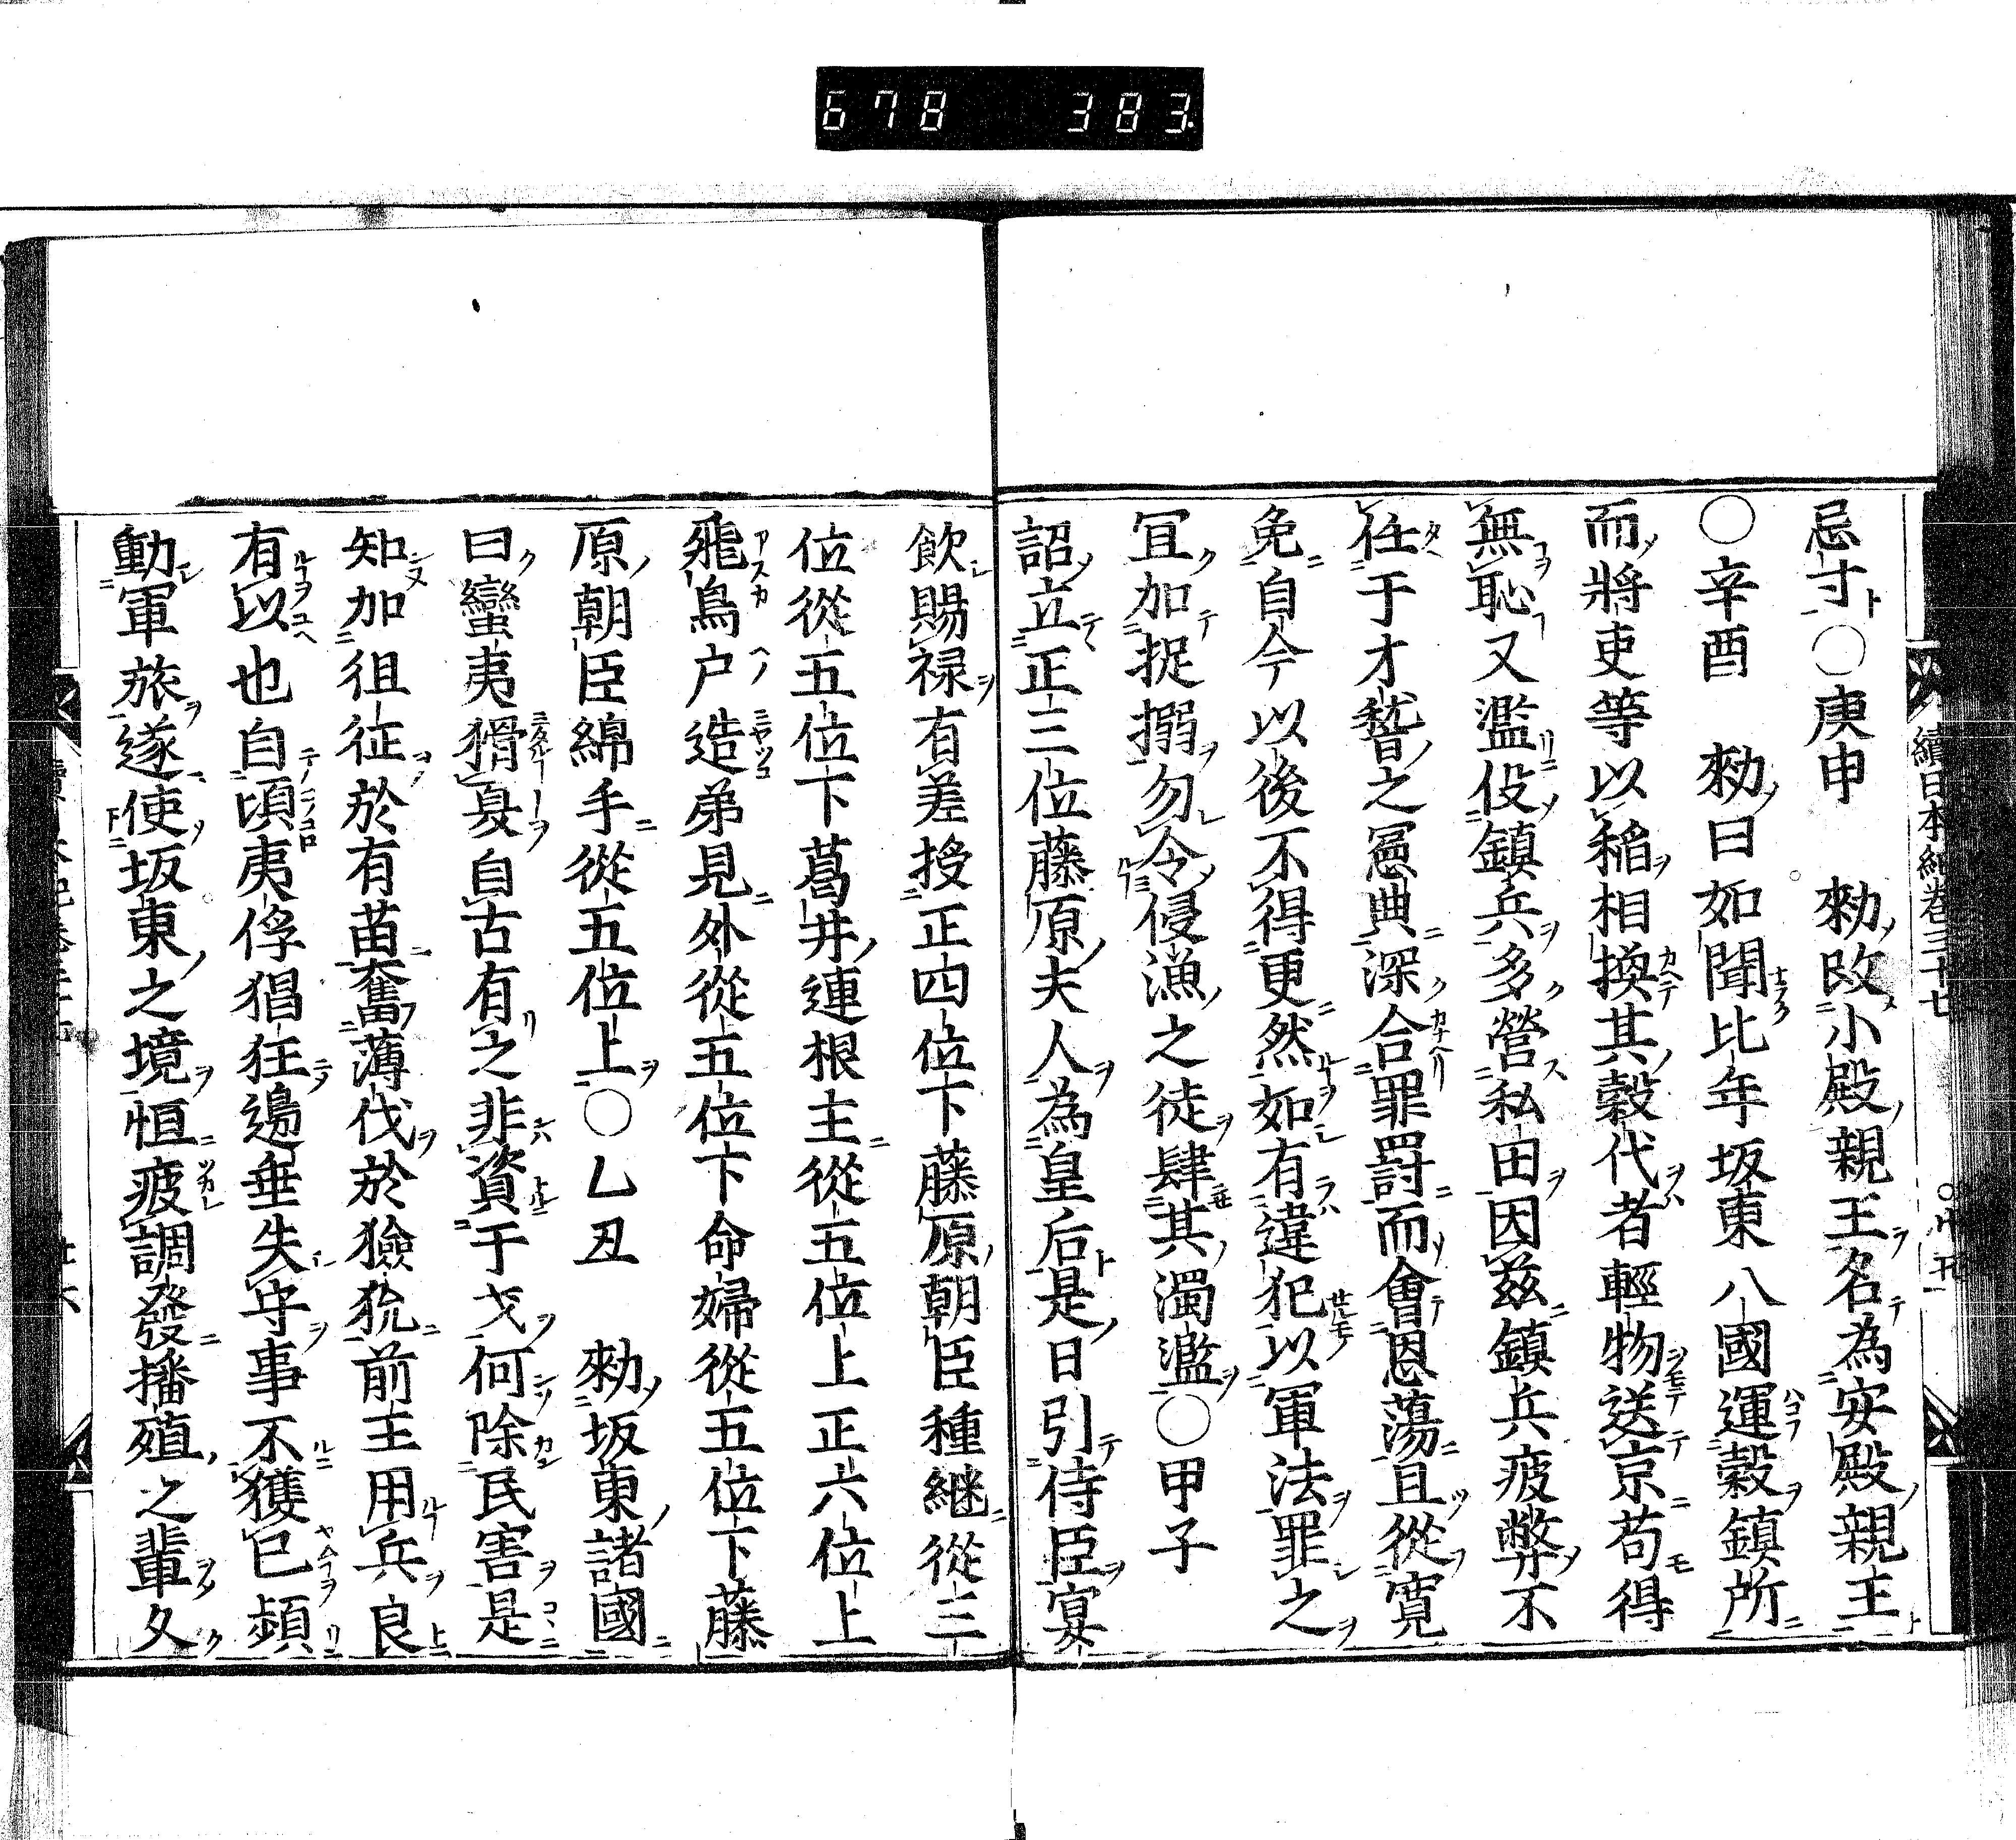 678 383
續日本紀卷三十七
忌寸○庚申 勑改小殿親王名為安殿親王
○辛酉 勑曰如聞比年坂東八國運穀鎮所
而將吏等以稲相換其穀代者輕物送京苟得
無恥又濫役鎮兵多營私田因兹鎮兵疲弊不
任于戈稽之憲典深合罪罸而會恩蕩且從寛
免自今以後不得更然如有違犯以軍法罪之
冝加捉搦勿令侵漁之徒肆其濁濫○甲子
詔立正三位藤原夫人為皇后是日引侍臣宴
飲賜禄有差授正四位下藤原朝臣種継從三
位從五位下葛井連根主從五位上正六位上
飛鳥戸造弟見外從五位下命婦從五位下藤
原朝臣綿手從五位上○乙丑 勑坂東諸國
曰蠻夷猾夏自古有之非資干戈何除民害是
知加徂征於有苗奮薄伐於獫狁前王用兵良
有以也自頃夷俘猖狂邊垂失守事不獲已頻
動軍旅遂使坂東之境恒疲調發播殖之輩久